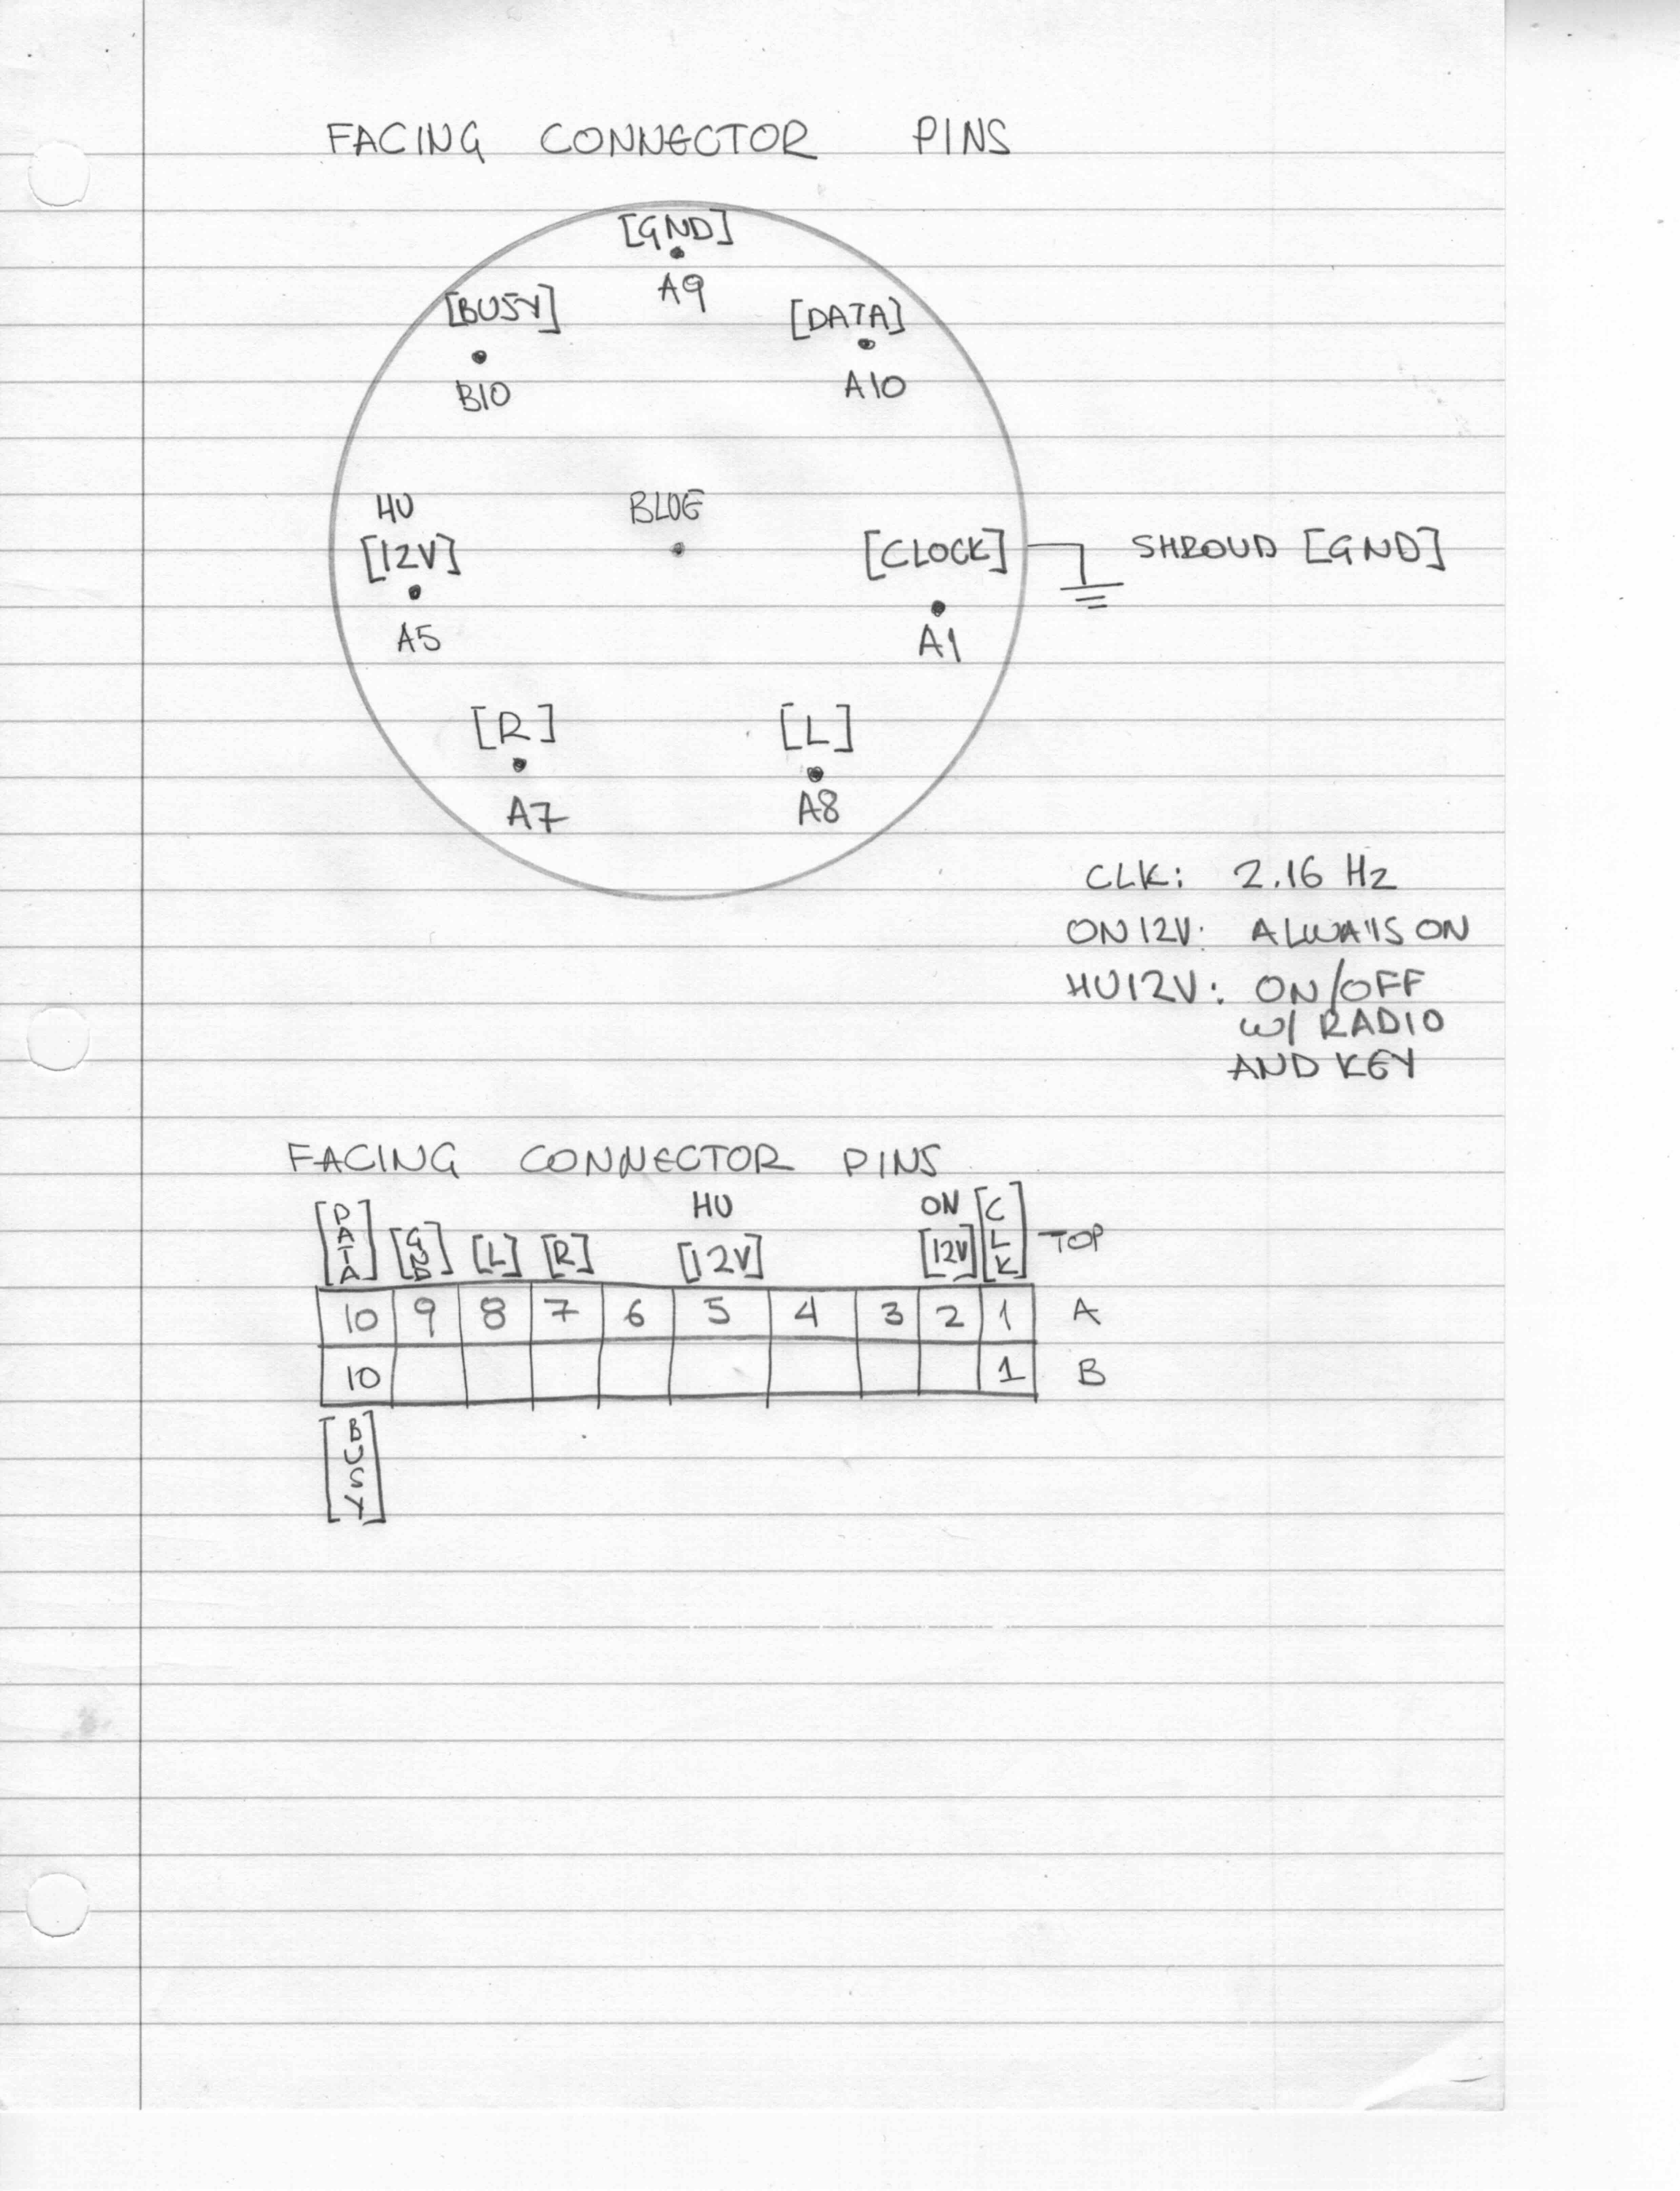 FACING CONNECTOR PINS
[GND]
A9
[BUSY]
B10
[DATA]
A10
HU
[12V]
A5
BLUE
[CLOCK]
A1
SHROUD [GND]
[R]
A7
[L]
A8
CLK: 2.16 Hz
ON12V: ALWAYS ON
HU12V: ON/OFF
W/ RADIO
AND KEY
FACING CONNECTOR PINS
HU ON
[DATA] [GND] [L] [R] [12V] [12V] [CLK] TOP
10 9 8 7 6 5 4 3 2 1 A
10 1 B
[BUSY]